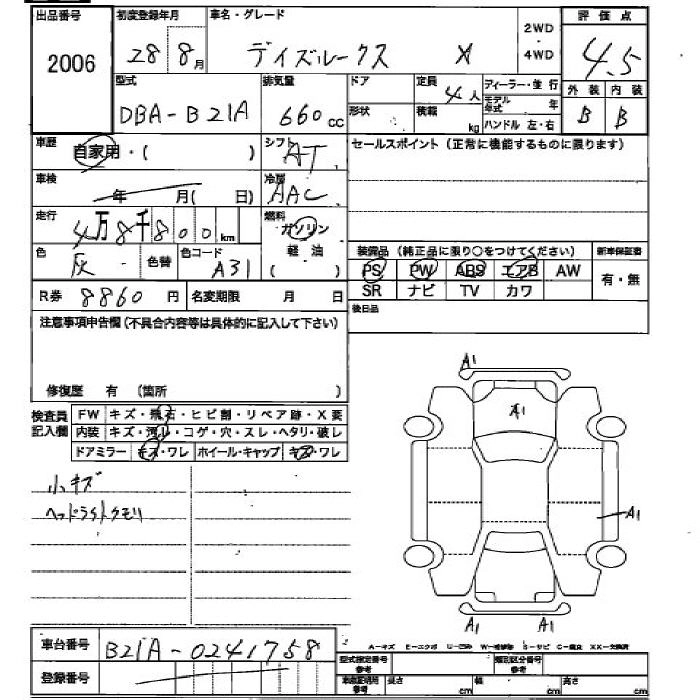 出品番号 初度登録年月 車名・グレード 2WD・4WD 評価点
2006 28 8月 デイズルークス X 4.5
型式 排気量 ドア 定員 ディーラー・並行 外装 内装
DBA-B21A 660cc 形状 4人 積載 kg モデル年式 年 ハンドル 左・右 B B
車歴 自家用・( ) シフト AT セールスポイント(正常に機能するものに限ります)
車検 年 月( 日) 冷房 AAC
走行 4万8千800km 燃料 ガソリン
軽油 ( )
色 灰 色替 色コード A31 装備品(純正品に限り○をつけてください) 新車保証書
PS PW ABS エアB AW 有・無
R券 8860円 名変期限 月 日 SR ナビ TV カワ
注意事項申告欄(不具合内容等は具体的に記入して下さい) 後日品
修復歴 有 (箇所 )
検査員記入欄 FW キズ・飛石・ヒビ割・リペア跡・X要
内装 キズ・汚レ・コゲ・穴・スレ・ヘタリ・破レ
ドアミラー キズ・ワレ ホイール・キャップ キズ・ワレ
A1
A1
小キズ
ヘッドライトクモリ
A1
A1 A1
車台番号 B21A-0241758
A-キズ E-エクボ U-凹み W-補修跡 S-サビ C-腐食 XX-交換済
登録番号 型式指定番号 参考 類別区分番号 参考
車庫証明用 参考 長さ cm 幅 cm 高さ cm